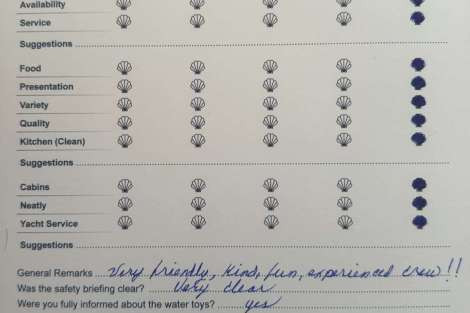 Availability
Service
Suggestions
Food
Presentation
Variety
Quality
Kitchen (Clean)
Suggestions
Cabins
Neatly
Yacht Service
Suggestions
General Remarks Very friendly, Kind, fun, experienced crew!!
Was the safety briefing clear? Very clear
Were you fully informed about the water toys? yes